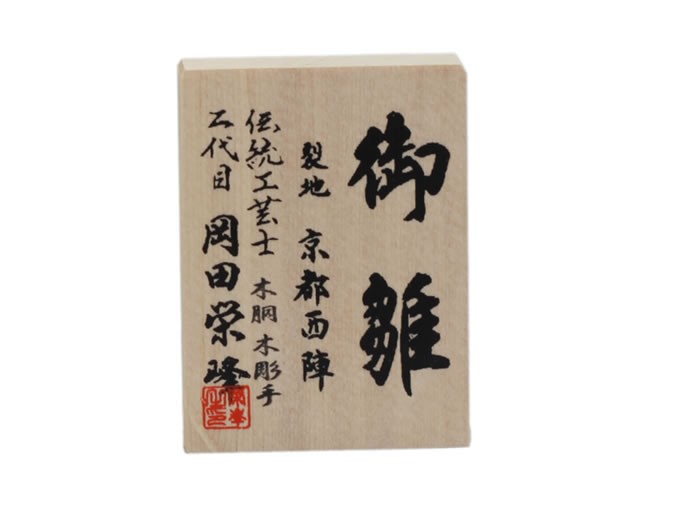 御雛
裂地 京都西陣
伝統工芸士 木胴 木彫手
二代目 岡田栄峰